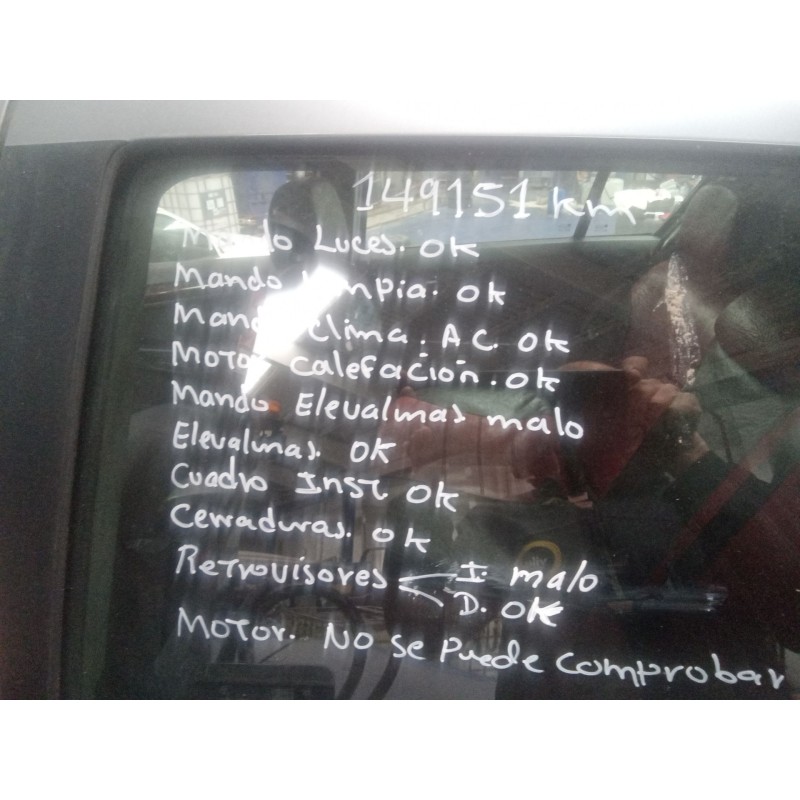 149151 km
Mando Luces. OK
Mando Limpia. OK
Mando Clima. A.C. OK
Motor Calefación. OK
Mando Elevalunas malo
Elevalunas. OK
Cuadro Inst. OK
Cerraduras. OK
Retrovisores I. malo
D. OK
Motor. No se Puede Comprobar